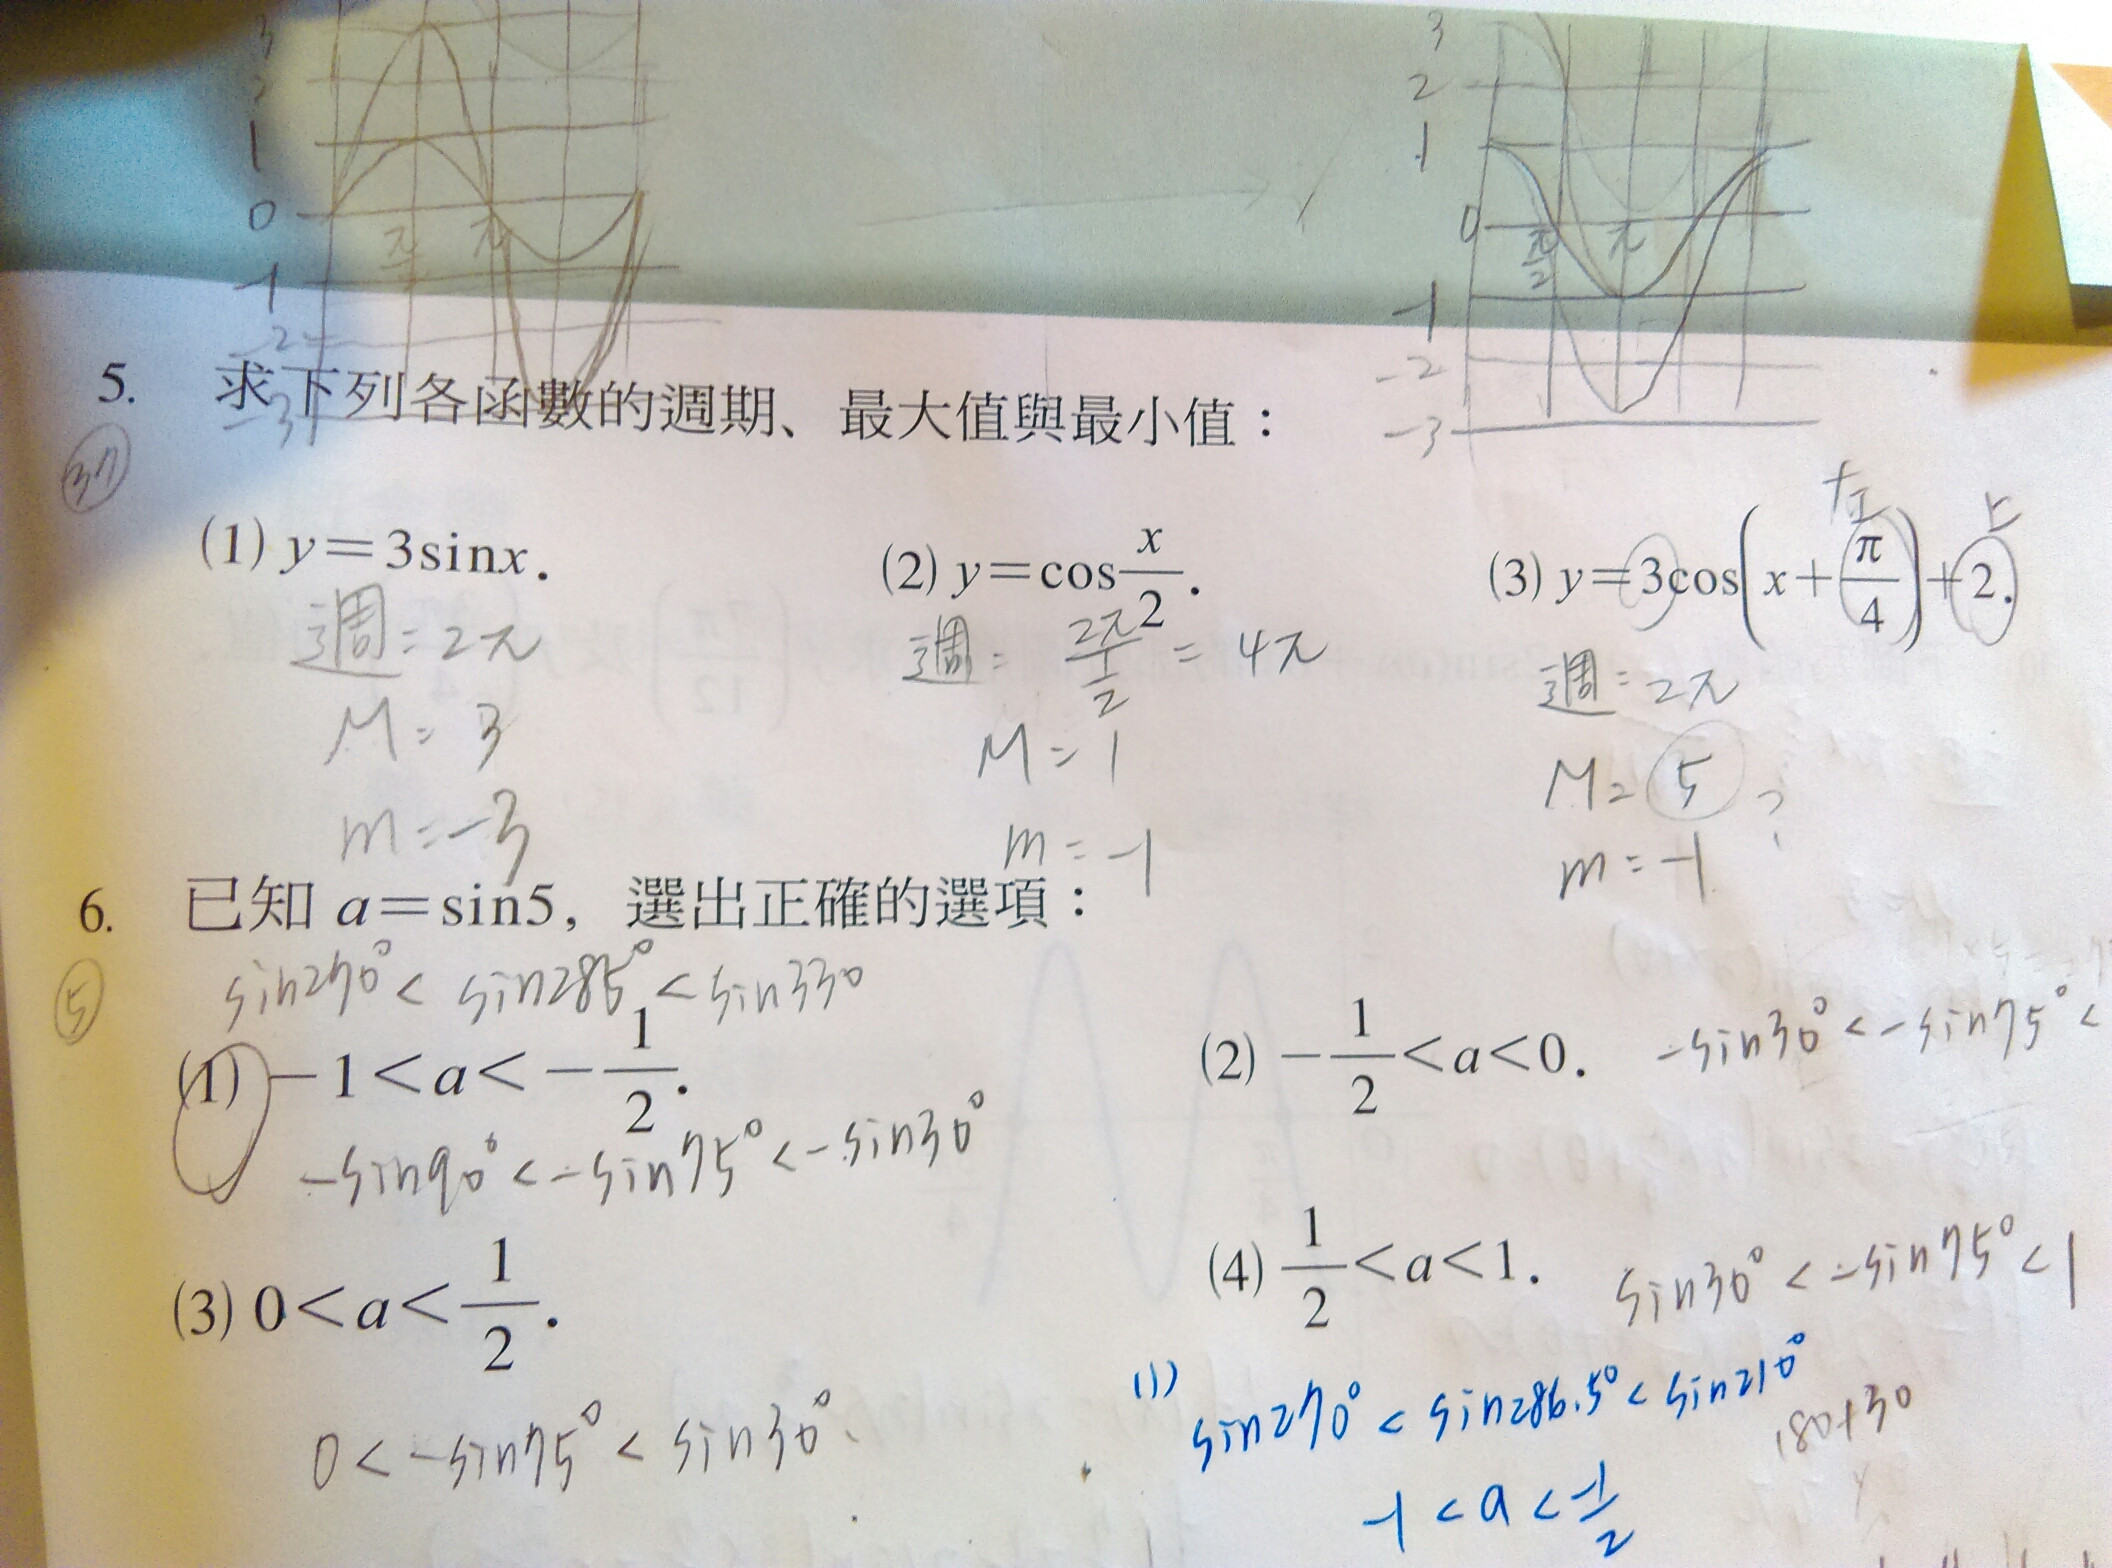 3
2
1
0
π/2 π
-1
-2
-3
3
2
1
0
π/2 π
-1
-2
-3
5. 求下列各函數的週期、最大值與最小值：
37
(1) y=3sinx.
週=2π
M=3
m=-3
(2) y=cos x/2.
週= 2π/(1/2) = 4π
M=1
m=-1
(3) y=3cos(x+π/4)+2.
週=2π
M=5 ?
m=-1
6. 已知 a=sin5，選出正確的選項：
5
sin270° < sin285° < sin330
(1) -1<a<-1/2.
-sin90° < -sin75° < -sin30°
(2) -1/2<a<0. -sin30° < -sin75° <
(3) 0<a<1/2.
0 < -sin75° < sin30°
(4) 1/2<a<1. sin30° < -sin75° < 1
(1) sin270° < sin286.5° < sin210°
180+30
-1 < a < -1/2